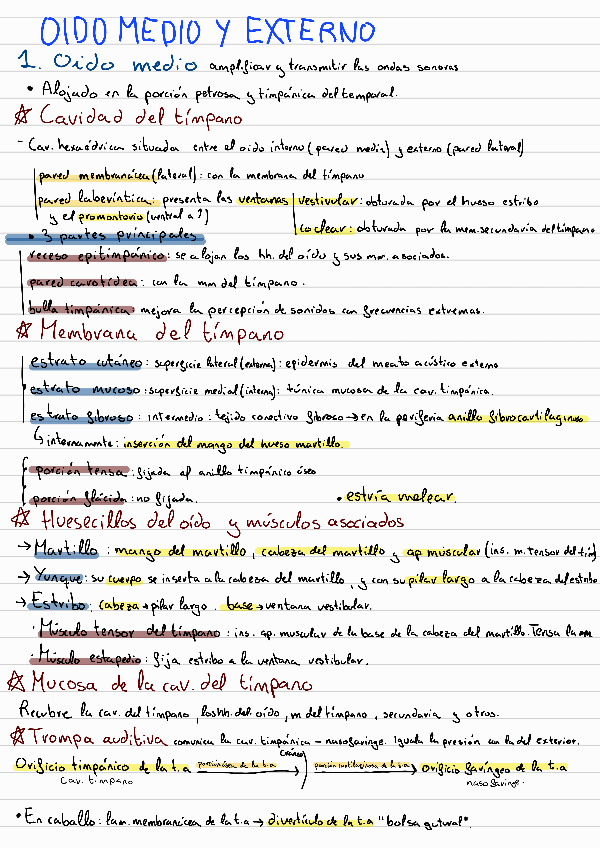 OIDO MEDIO Y EXTERNO
1. Oido medio amplificar y transmitir las ondas sonoras
• Alojado en la porción petrosa y timpánica del temporal.
☆ Cavidad del tímpano
- Cav. hexaédrica situada entre el oido interno (pared media) y externo (pared lateral)
pared membranácea (lateral): con la membrana del tímpano
pared laberíntica: presenta las ventanas vestivular: obturada por el hueso estribo
y el promontorio (ventral a ?) coclear: obturada por la mem. secundaria del tímpano
• 3 partes principales
receso epitimpánico: se alojan los hh. del oído y sus mm. asociados.
pared carotídea: con la mm del tímpano.
bulla timpánica: mejora la percepción de sonidos con frecuencias extremas.
☆ Membrana del tímpano
estrato cutáneo: superficie lateral (externa): epidermis del meato acústico externo
estrato mucoso: superficie medial (interna): túnica mucosa de la cav. timpánica.
estrato fibroso: intermedio: tejido conectivo fibroso → en la periferia anillo fibrocartilaginoso
↳ internamente: inserción del mango del hueso martillo.
porción tensa: fijada al anillo timpánico óseo
porción flácida: no fijada. • estría malear.
☆ Huesecillos del oído y músculos asociados
→ Martillo: mango del martillo, cabeza del martillo y ap muscular (ins. m. tensor del tím)
→ Yunque: su cuerpo se inserta a la cabeza del martillo, y con su pilar largo a la cabeza del estribo
→ Estribo: cabeza → pilar largo. base → ventana vestibular.
• Músculo tensor del tímpano: ins. ap. muscular de la base de la cabeza del martillo. Tensa la mm
• Músculo estapedio: fija estribo a la ventana vestibular.
☆ Mucosa de la cav. del tímpano
Recubre la cav. del tímpano, los hh. del oído, m del tímpano, secundaria y otros.
☆ Trompa auditiva comunica la cav. timpánica - nasofaringe. Iguala la presión con la del exterior.
Orificio timpánico de la t.a porción ósea de la t.a cráneo porción cartilaginosa de la t.a → orificio faríngeo de la t.a
cav. tímpano nasofaringe.
• En caballo: lam. membranácea de la t.a → divertículo de la t.a "bolsa gutural".